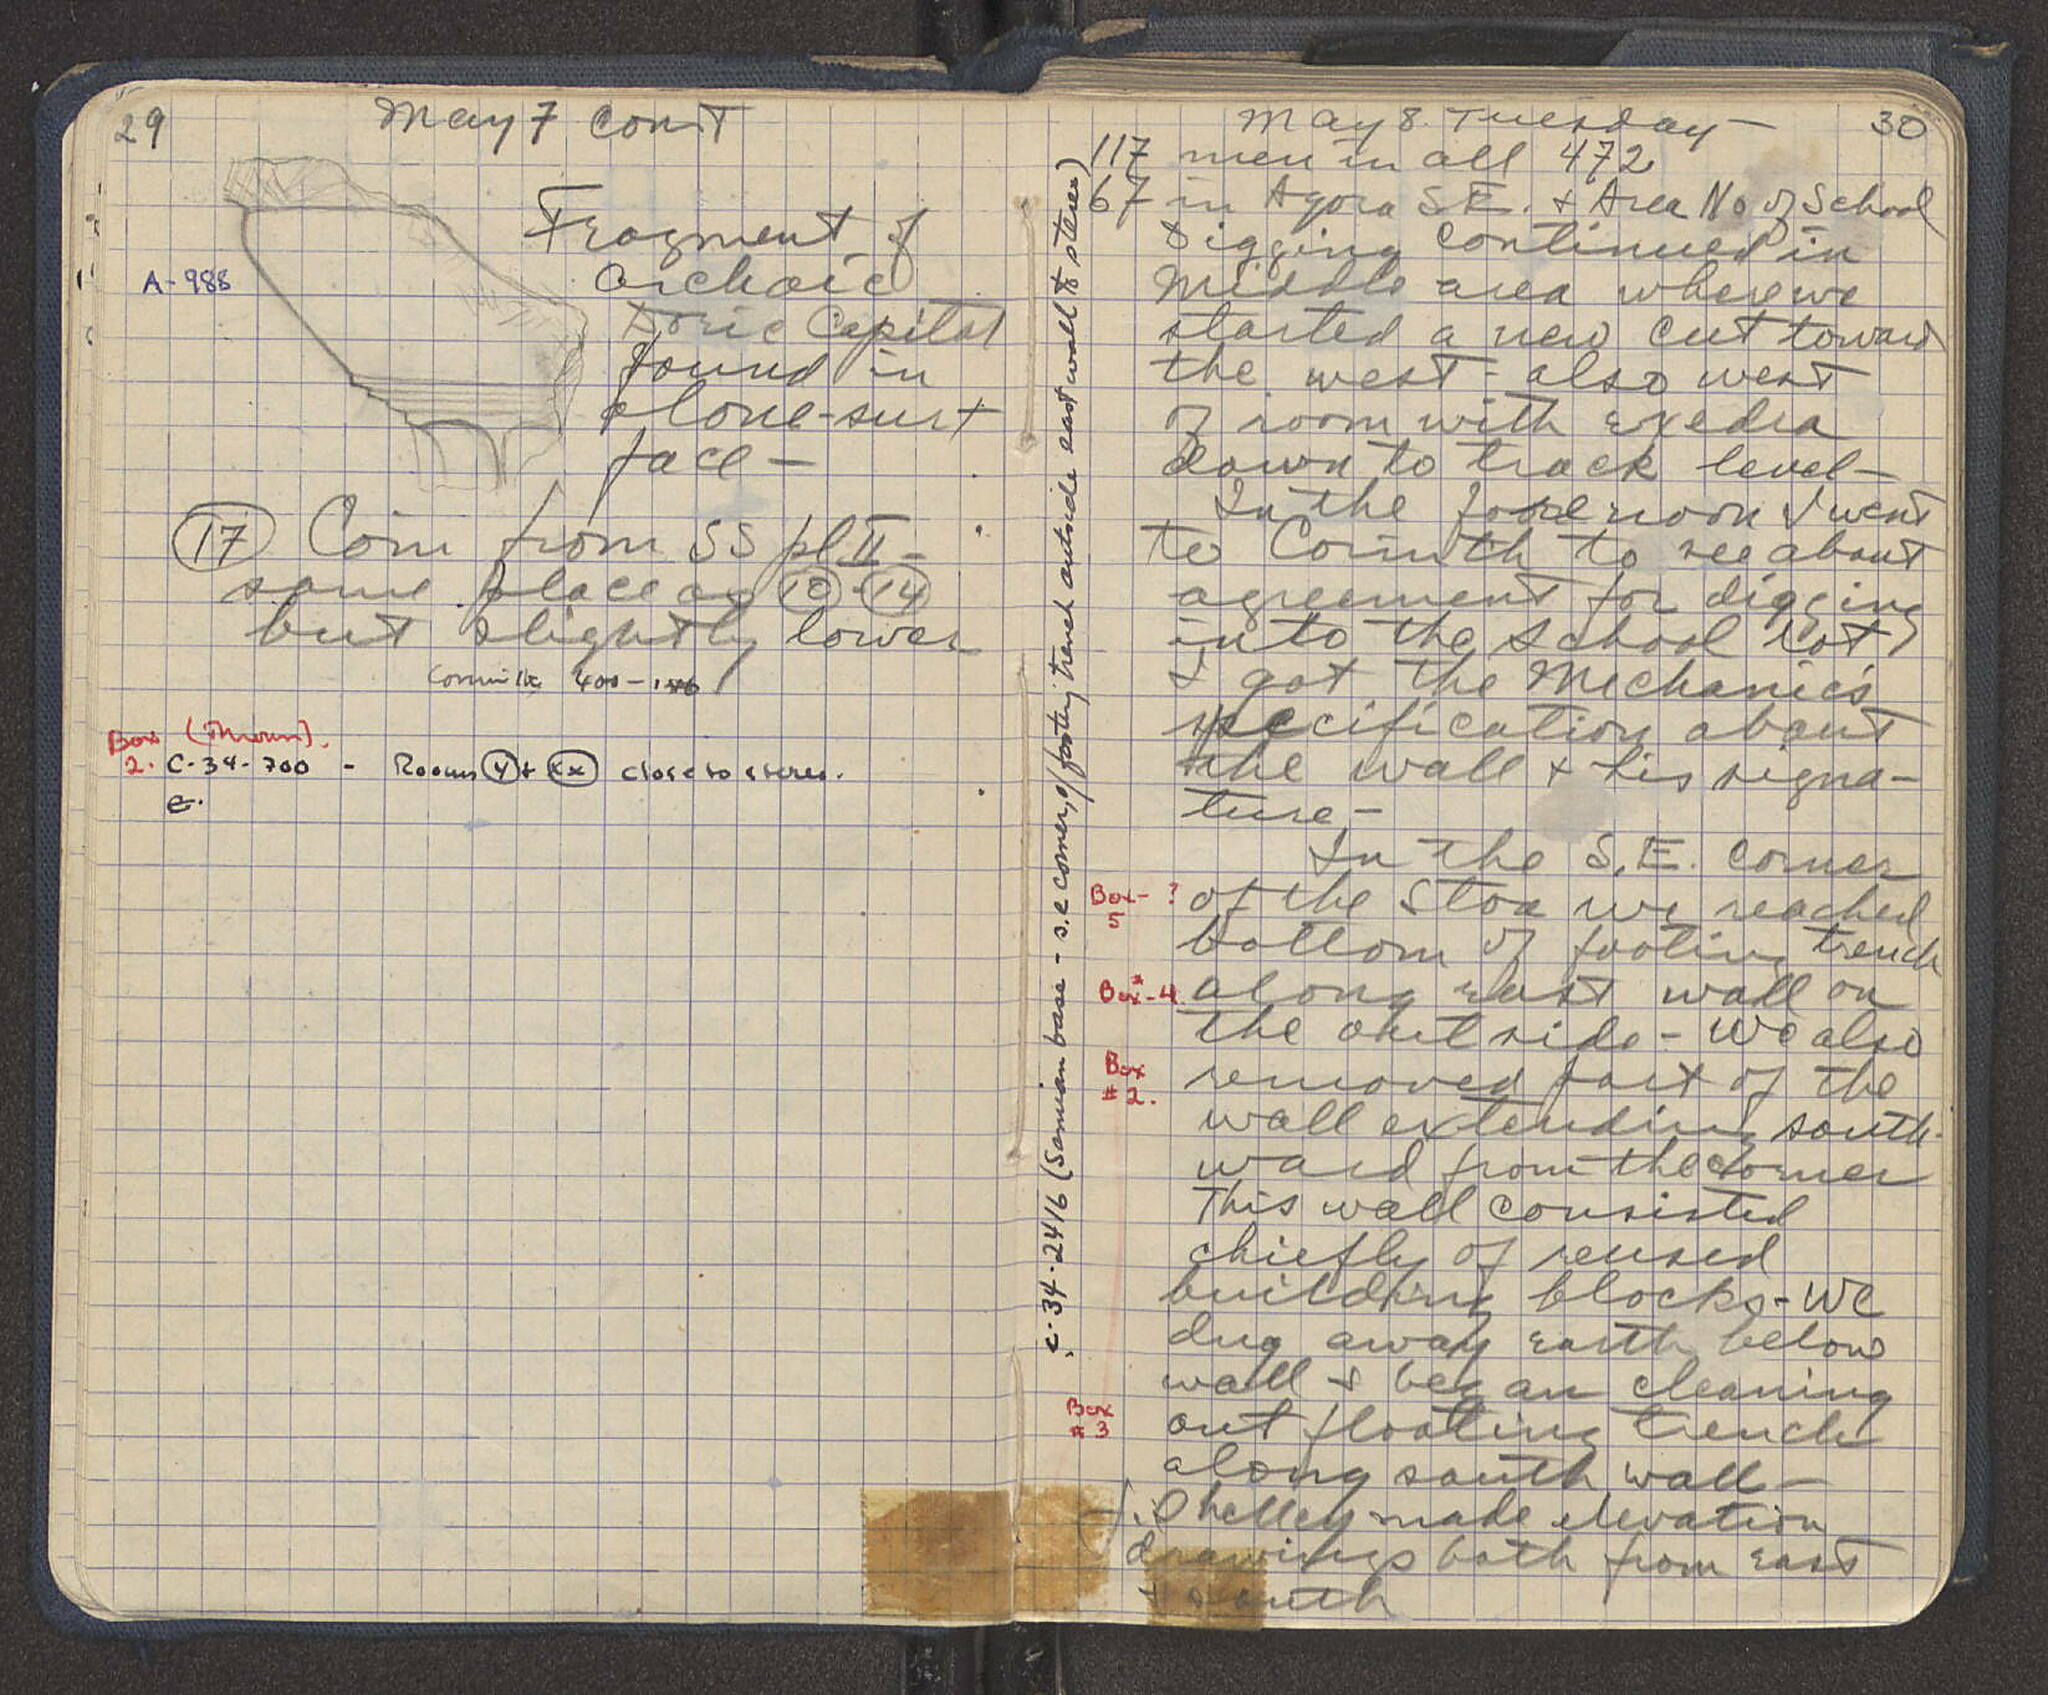 29 May 7 cont
A-988
Fragment of
archaic
Doric Capital
found in
close sur+
face-
(17) Coin from SS pl II-
same place as (10)-(14)
but slightly lower
Corinth 400-146
Box
2. C-34-700 - Rooms (Y)+(Xx) close to stereo.
C.
C-34-2416 (Samian base - s.e corner, of footing trench outside east wall to stereo)
May 8. Tuesday- 30
117 men in all 472
67 in Agora S.E. + Area No of School
Digging continued in
Middle area where we
started a new cut toward
the west - also west
of room with exedra
down to track level-
In the forenoon I went
to Corinth to see about
agreement for digging
into the school lot
+ got the Mechanic's
specification about
the wall + his signa-
ture-
In the S.E. corner
Box-?
5
of the Stoa we reached
bottom of footing trench
Box-4
along east wall on
the outside - We also
Box
#2.
removed part of the
wall extending south-
ward from the corner
This wall consisted
chiefly of reused
building blocks - We
dug away earth below
wall + began cleaning
Box
#3
out floating trench
along south wall-
Shelley made elevation
drawings both from east
+ south